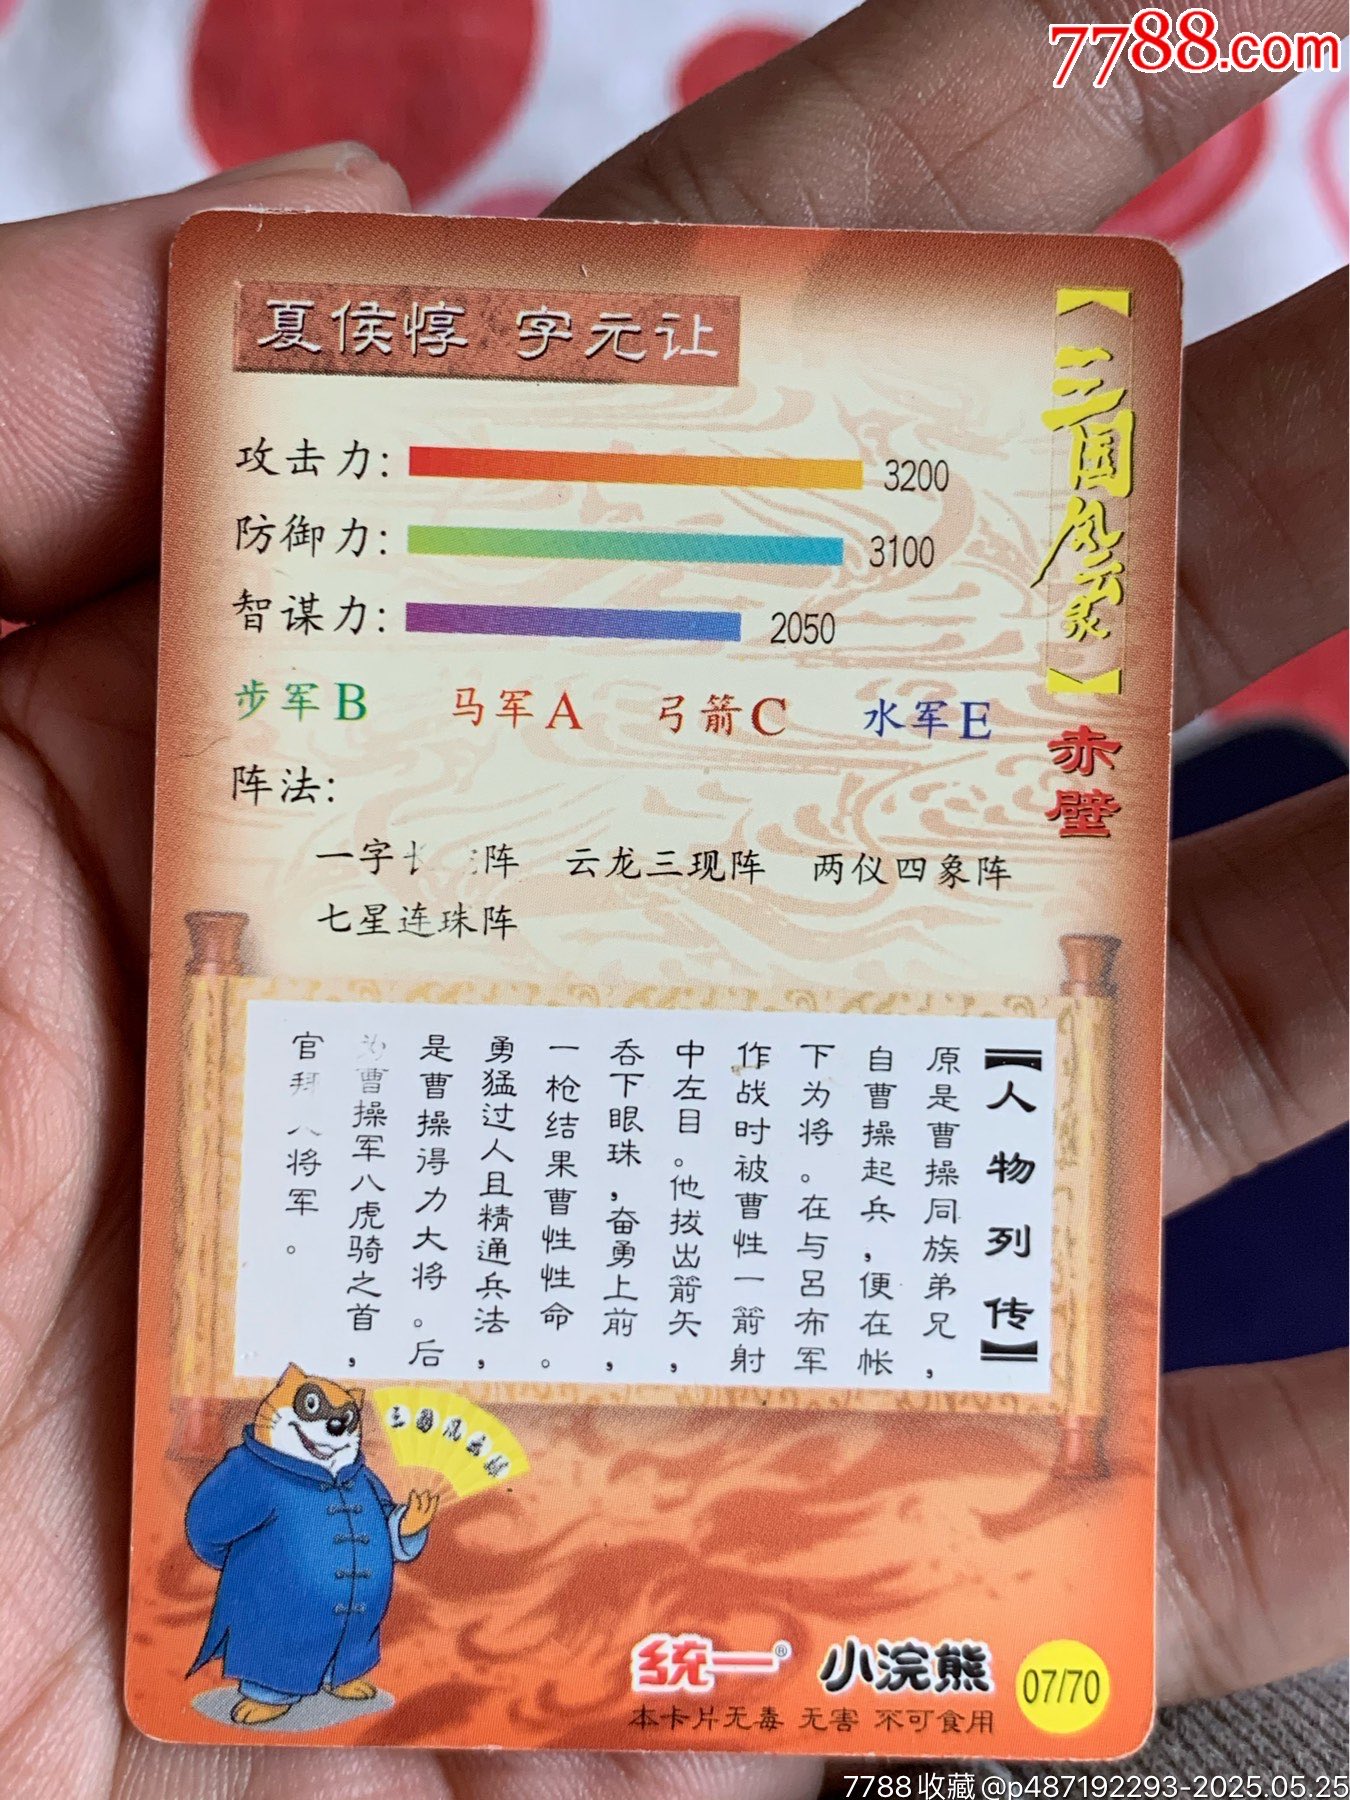 7788.com
夏侯惇 字元让
攻击力: 3200
防御力: 3100
智谋力: 2050
步军B 马军A 弓箭C 水军E
阵法:
一字长 阵 云龙三现阵 两仪四象阵
七星连珠阵
【三国风云录】赤壁
【人物列传】
原是曹操同族弟兄，
自曹操起兵，便在帐
下为将。在与吕布军
作战时被曹性一箭射
中左目。他拔出箭矢，
吞下眼珠，奋勇上前，
一枪结果曹性性命。
勇猛过人且精通兵法，
是曹操得力大将。后
为曹操军八虎骑之首，
官拜 将军。
三国风云录
统一® 小浣熊
07/70
本卡片无毒 无害 不可食用
7788收藏@p487192293-2025.05.25